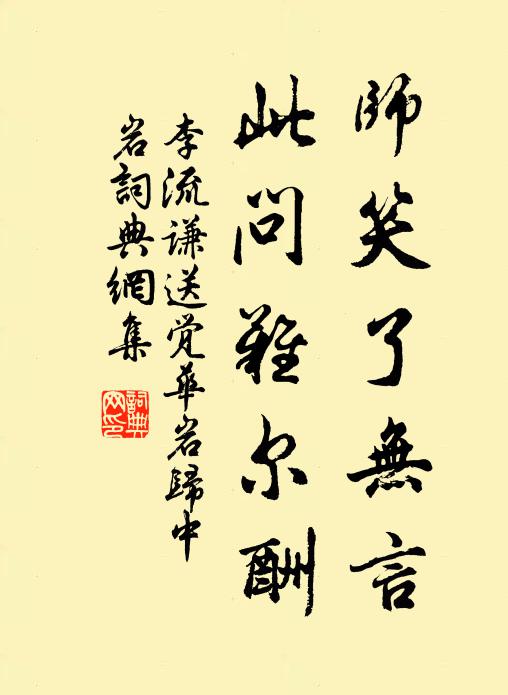 師笑了無言
此問難尔酬
李流谦送覚華岩歸中
岩詞典網集
詞典
网印